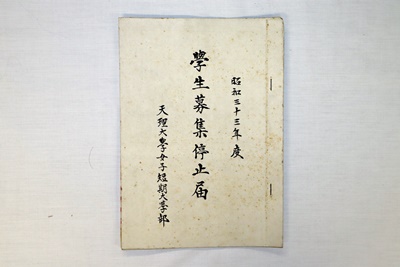 昭和三十三年度
學生募集停止届
天理大学女子短期大学部